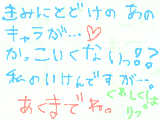 きみにとどけの あの
キャラが…♡
かっこいくないっ!?
私のいけんですが…。
あくまでね。
くわしくは
りっ。